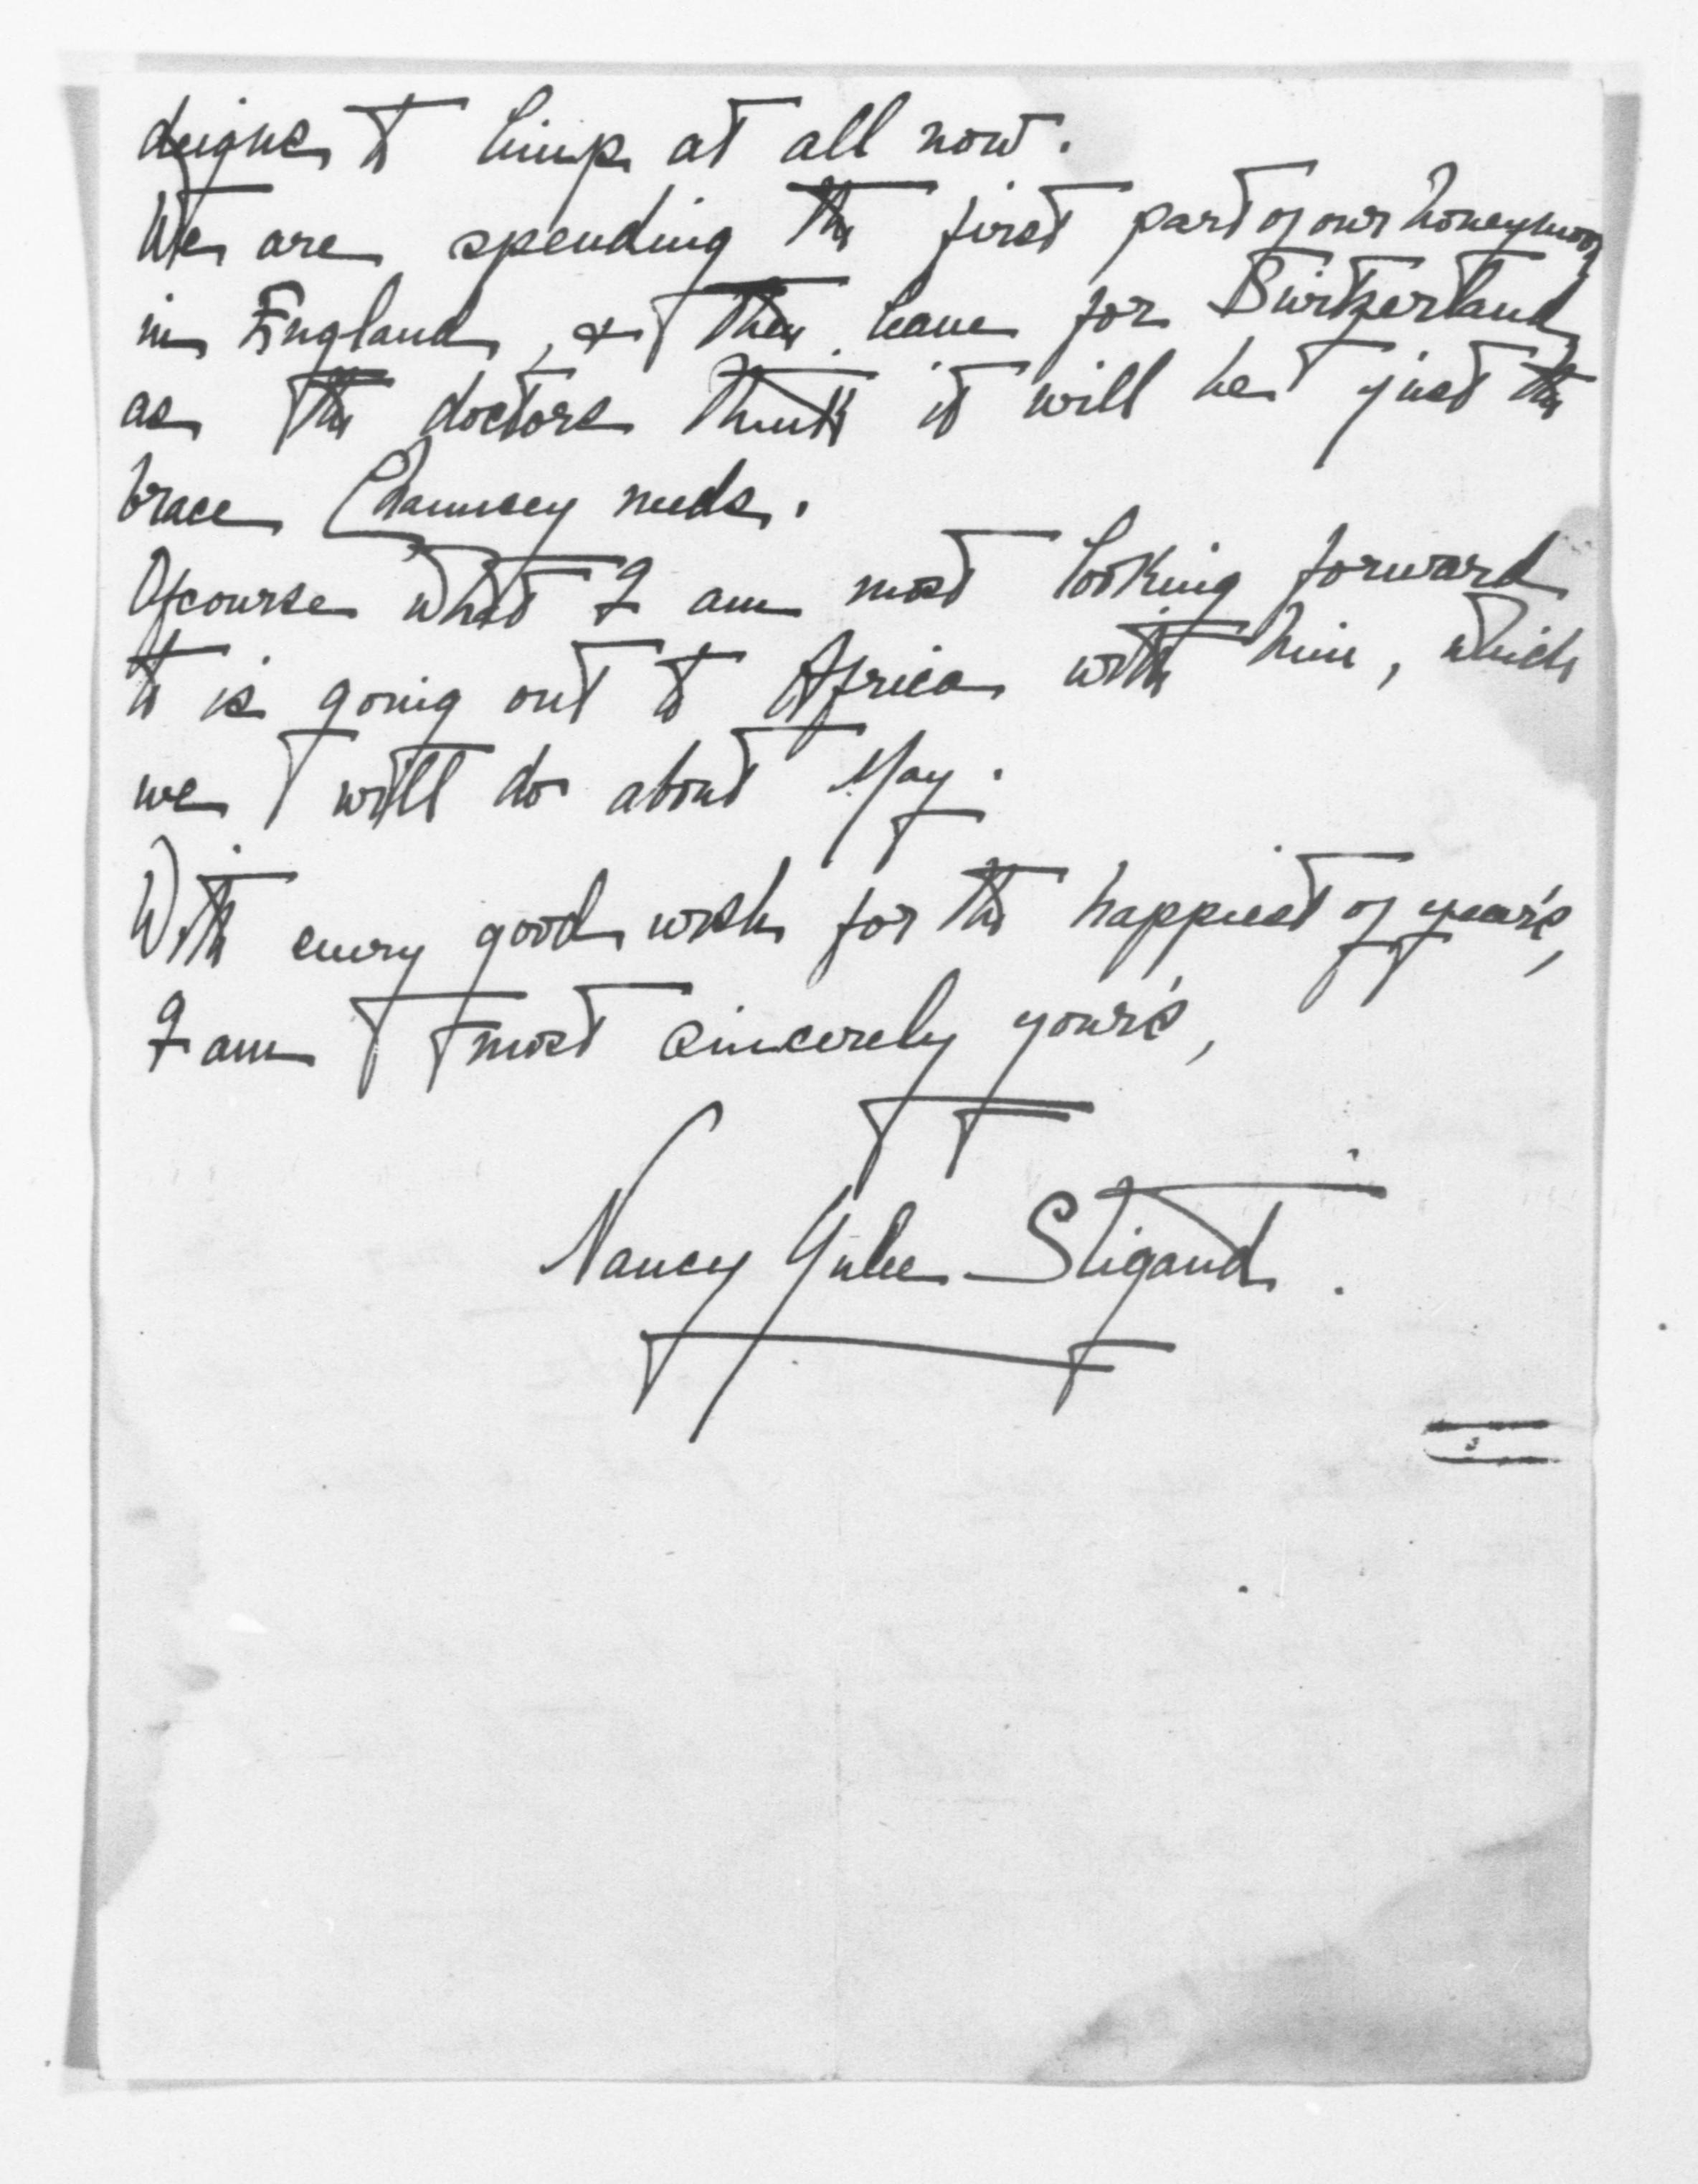 deigns to limp at all now.
We are spending the first part of our honeymoon
in England, & then leave for Switzerland
as the doctors think it will be just the
brace Chauncey needs.
Ofcourse what I am most looking forward
to is going out to Africa with him, which
we will do about May.
With every good wish for the happiest of year's,
I am most sincerely your's,
Nancy Yulee Stigand.